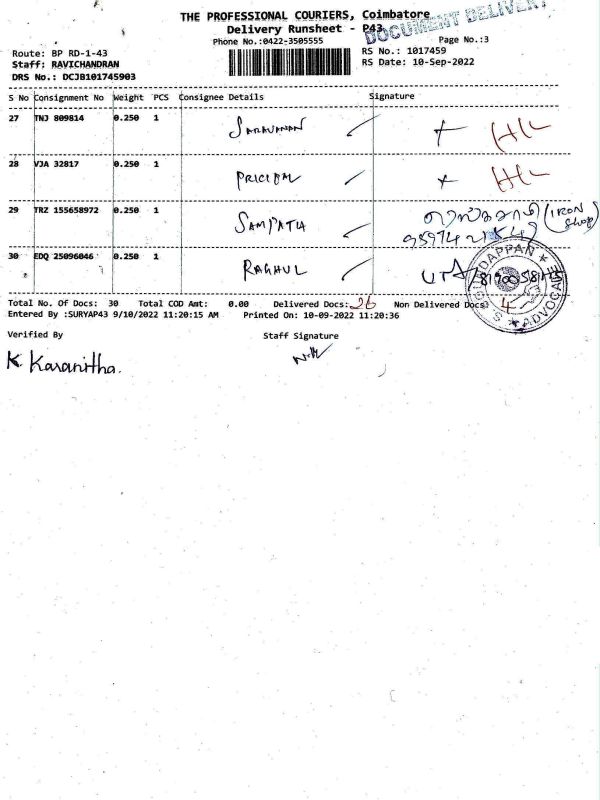 THE PROFESSIONAL COURIERS, Coimbatore
Delivery Runsheet - P43
DOCUMENT DELIVERY
Phone No.:0422-3505555
Page No.:3
Route: BP RD-1-43
RS No.: 1017459
Staff: RAVICHANDRAN
RS Date: 10-Sep-2022
DRS No.: DCJB101745903
S No Consignment No Weight PCS Consignee Details Signature
27 TNJ 809814 0.250 1 SARAVANAN
28 VJA 32817 0.250 1 PRICIPAL
29 TRZ 155658972 0.250 1 SAMPATH (IRON SHOP)
30 EDQ 25096046 0.250 1 RAGHUL
ADVOCATE
Total No. Of Docs: 30 Total COD Amt: 0.00 Delivered Docs: 26 Non Delivered Docs: 4
Entered By :SURYAP43 9/10/2022 11:20:15 AM Printed On: 10-09-2022 11:20:36
Verified By Staff Signature
K. Karanitha.